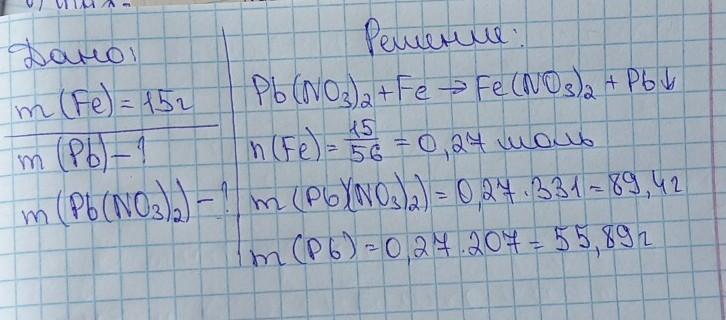 Дано:
m(Fe)=15г
m(Pb)-?
m(Pb(NO3)2)-?
Решение:
Pb(NO3)2+Fe→Fe(NO3)2+Pb↓
n(Fe)=15/56=0,27 моль
m(Pb)(NO3)2)=0,27·331=89,4г
m(Pb)=0,27·207=55,89г